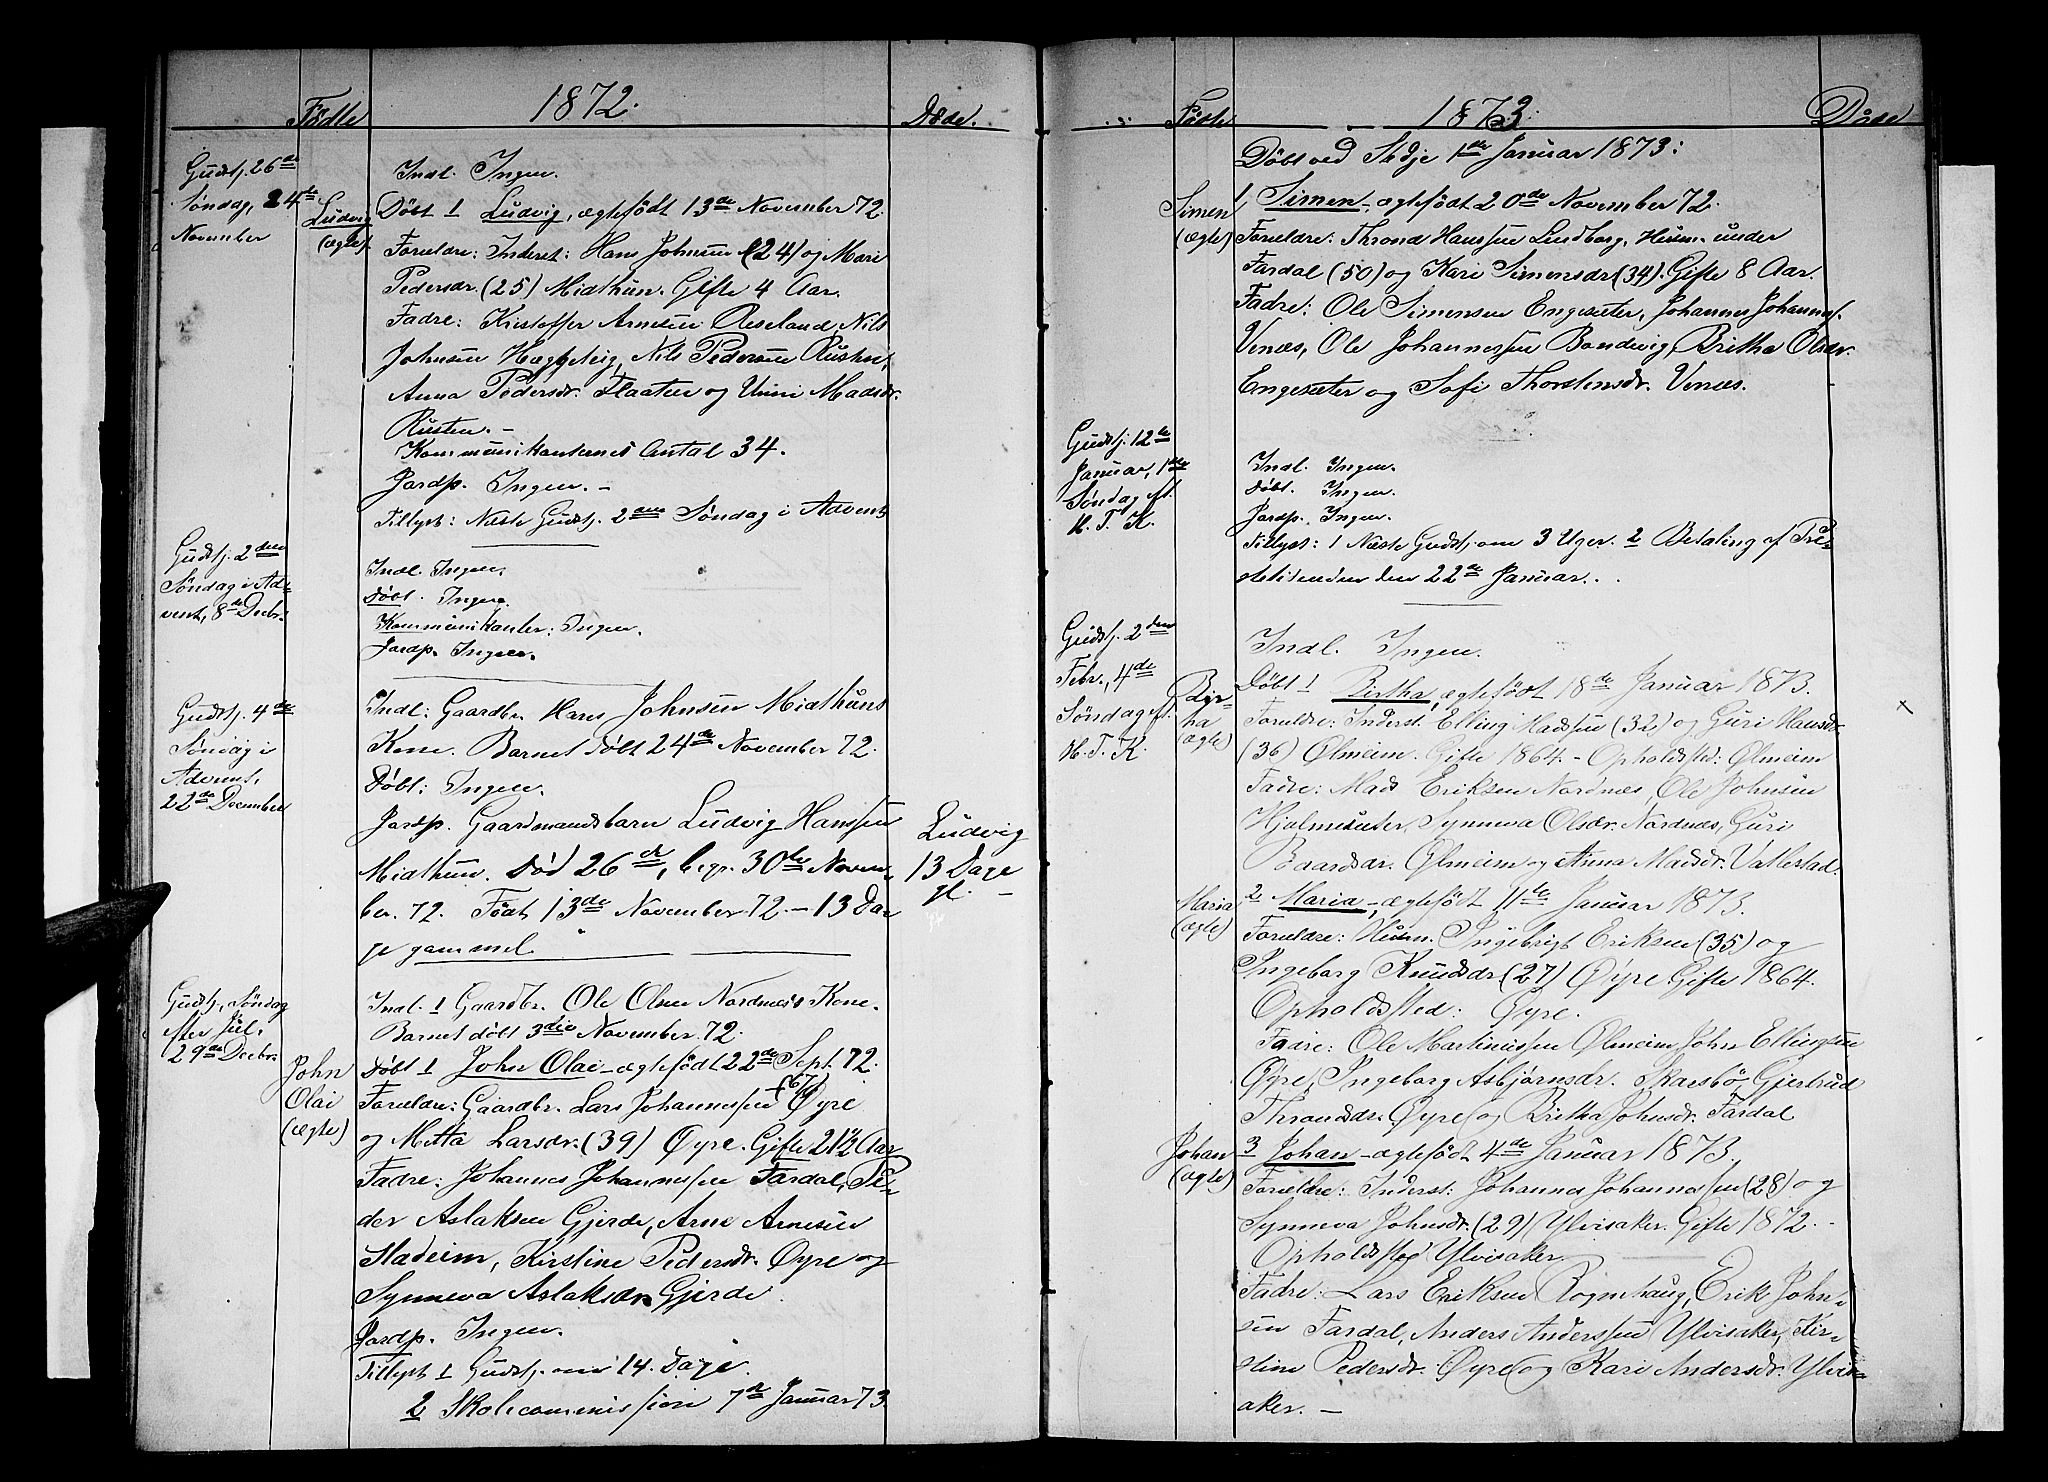 1872.
Fødte
Døde.
Gudstj. 26de
Søndag, 24de
November
Ludvig
(ægte)
Indl. Ingen.
Døbt 1 Ludvig, ægtefødt 13de November 72.
Forældre: Inderst: Hans Johnsen (24) og Mari
Pedersdr. (25) Midthun. Gifte 4 Aar.
Fadre: Kristoffer Arnesen Reseland, Nils
Johnsen, Nils Pedersen Rusten,
Anna Pedersdr. Flaaten og Unni Madsdr.
Rusten. -
Kommunikanternes Antal 34.
Jordp. Ingen. -
Tillyst: Næste Gudstj. 2den Søndag i Advent
Gudstj. 2den
Søndag i Ad-
vent, 8de Decbr.
Indl. Ingen.
Døbt. Ingen.
Kommunikanter: Ingen.
Jordp. Ingen.
Gudstj. 4de
Søndag i
Advent,
22de December
Indl: Gaardbr. Hans Johnsen Midthuns
Kone. Barnet døbt 24de November 72.
Døbt: Ingen.
Jordp. Gaardmandsbarn Ludvig Hanssen
Midthun. Død 26de, begr. 30te Novem-
ber. 72. Født 13de November 72. - 13 Da-
ge gammel.
Ludvig
13 Dage
gl. -
Gudstj. Søndag
efter Jul.
29de Decbr.
John
Olai
(ægte)
Indl. 1 Gaardbr. Ole Olsen Nordnæs's Kone.
Barnet døbt 3die November 72.
Døbt 1 John Olai - ægtefødt 22de Sept. 72.
Forældre: Gaardbr. Lars Johannessen Øyre
og Mitta Larsdr. (39) Øyre. Gifte 21½ Aar
Fadre: Johannes Johannessen Fardal, Pe-
der Aslaksen Gjerde, Arne Arnesen
Stadeim, Kirstine Pedersdr. Øyre og
Synneva Aslaksdr. Gjerde.
Jordp. Ingen.
Tillyst 1 Gudstj. om 14. Dage.
2 Skolecommission 7de Januar 73
1873.
Fødte
Døde
Døbt ved Stedje 1ste Januar 1873:
Simen
(ægte)
1 Simen, ægtefødt 20de November 72.
Forældre: Thrond Hanssen Lindborg, Husm. under
Fardal (50) og Kari Simensdr. (34). Gifte 8 Aar.
Fadre: Ole Simensen Engesæter, Johannes Johanness.
Venæs, Ole Johannessen Bondevig, Britha Olsdr.
Engesæter og Sofi Thorstensdr. Venæs.
Gudstj. 12te
Januar, 1ste
Søndag ef.
H. T. K.
Indl. Ingen.
Døbt. Ingen.
Jordp. Ingen.
Tillyst: 1 Næste Gudstj. om 3 Uger. 2 Betaling af Præ-
stetienden den 22de Januar.
Gudstj. 2den
Febr., 4de
Søndag ef.
H. T. K.
Indl. Ingen.
Bir-
tha
(ægte)
Døbt 1 Birtha, ægtefødt 18de Januar 1873.
Forældre: Inderst. Elling Madsen (32) og Guri Hansdr.
(36) Ølmeim. Gifte 1864. - Opholdsted: Ølmeim
Fadre: Mads Eriksen Nordnæs, Ole Johnsen
Hjelmesæter, Synneva Olsdr. Nordnæs, Guri
Baardsdr. Ølmeim og Anna Madsdr. Vallestad.
Maria
(ægte)
2 Maria, ægtefødt 11te Januar 1873.
Forældre: Husm. Ingebrigt Eriksen (35) og
Ingeborg Knudsdr. (27) Øyre Gifte 1864.
Opholdsted: Øyre.
Fadre: Ole Martinussen Ølmeim, John Ellingsen
Øyre, Ingeborg Asbjørnsdr. Skarsbø, Gjertrud
Throndsdr. Øyre og Britha Johnsdr. Fardal
Johan
(ægte)
3 Johan - ægtefødt 4de Januar 1873.
Forældre: Inderst: Johannes Johannessen (28) og
Synneva Johnsdr. (29) Ylvisaker. Gifte 1872. -
Opholdsted Ylvisaker.
Fadre: Lars Eriksen Rognhaug, Erik John-
sen Fardal, Anders Anderssen Ylvisaker, Kir-
stine Pedersdr. Øyre og Kari Andersdr. Ylvis-
aker. -